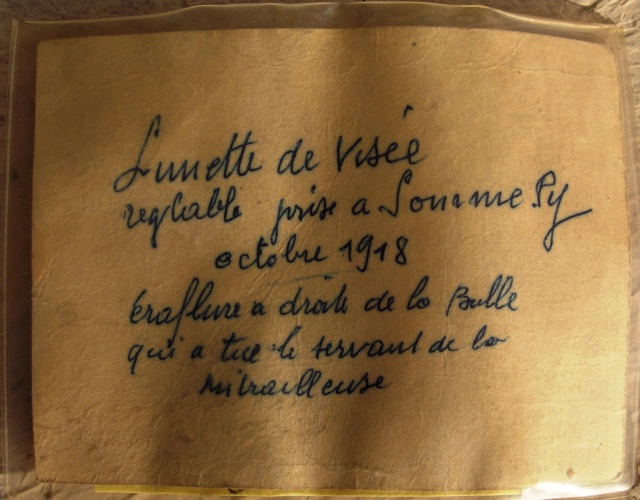 Lunette de Visée
reglable prise a Somme.Py
octobre 1918
éraflure a droite de la Balle
qui a tué le servant de la
mitrailleuse